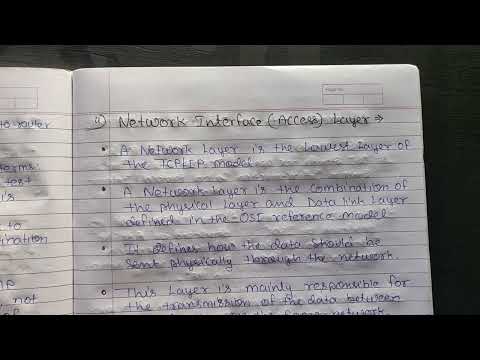 to router
terms.
test
is
to
not
4) Network Interface (Access) Layer →
• A Network Layer is the Lowest Layer of
the TCP/IP model.
• A Network Layer is the combination of
the physical Layer and Data link Layer
defined in the OSI reference model
• It defines how the data should be
sent physically through the network.
• This Layer is mainly responsible for
the transmission of the data between
the same network.